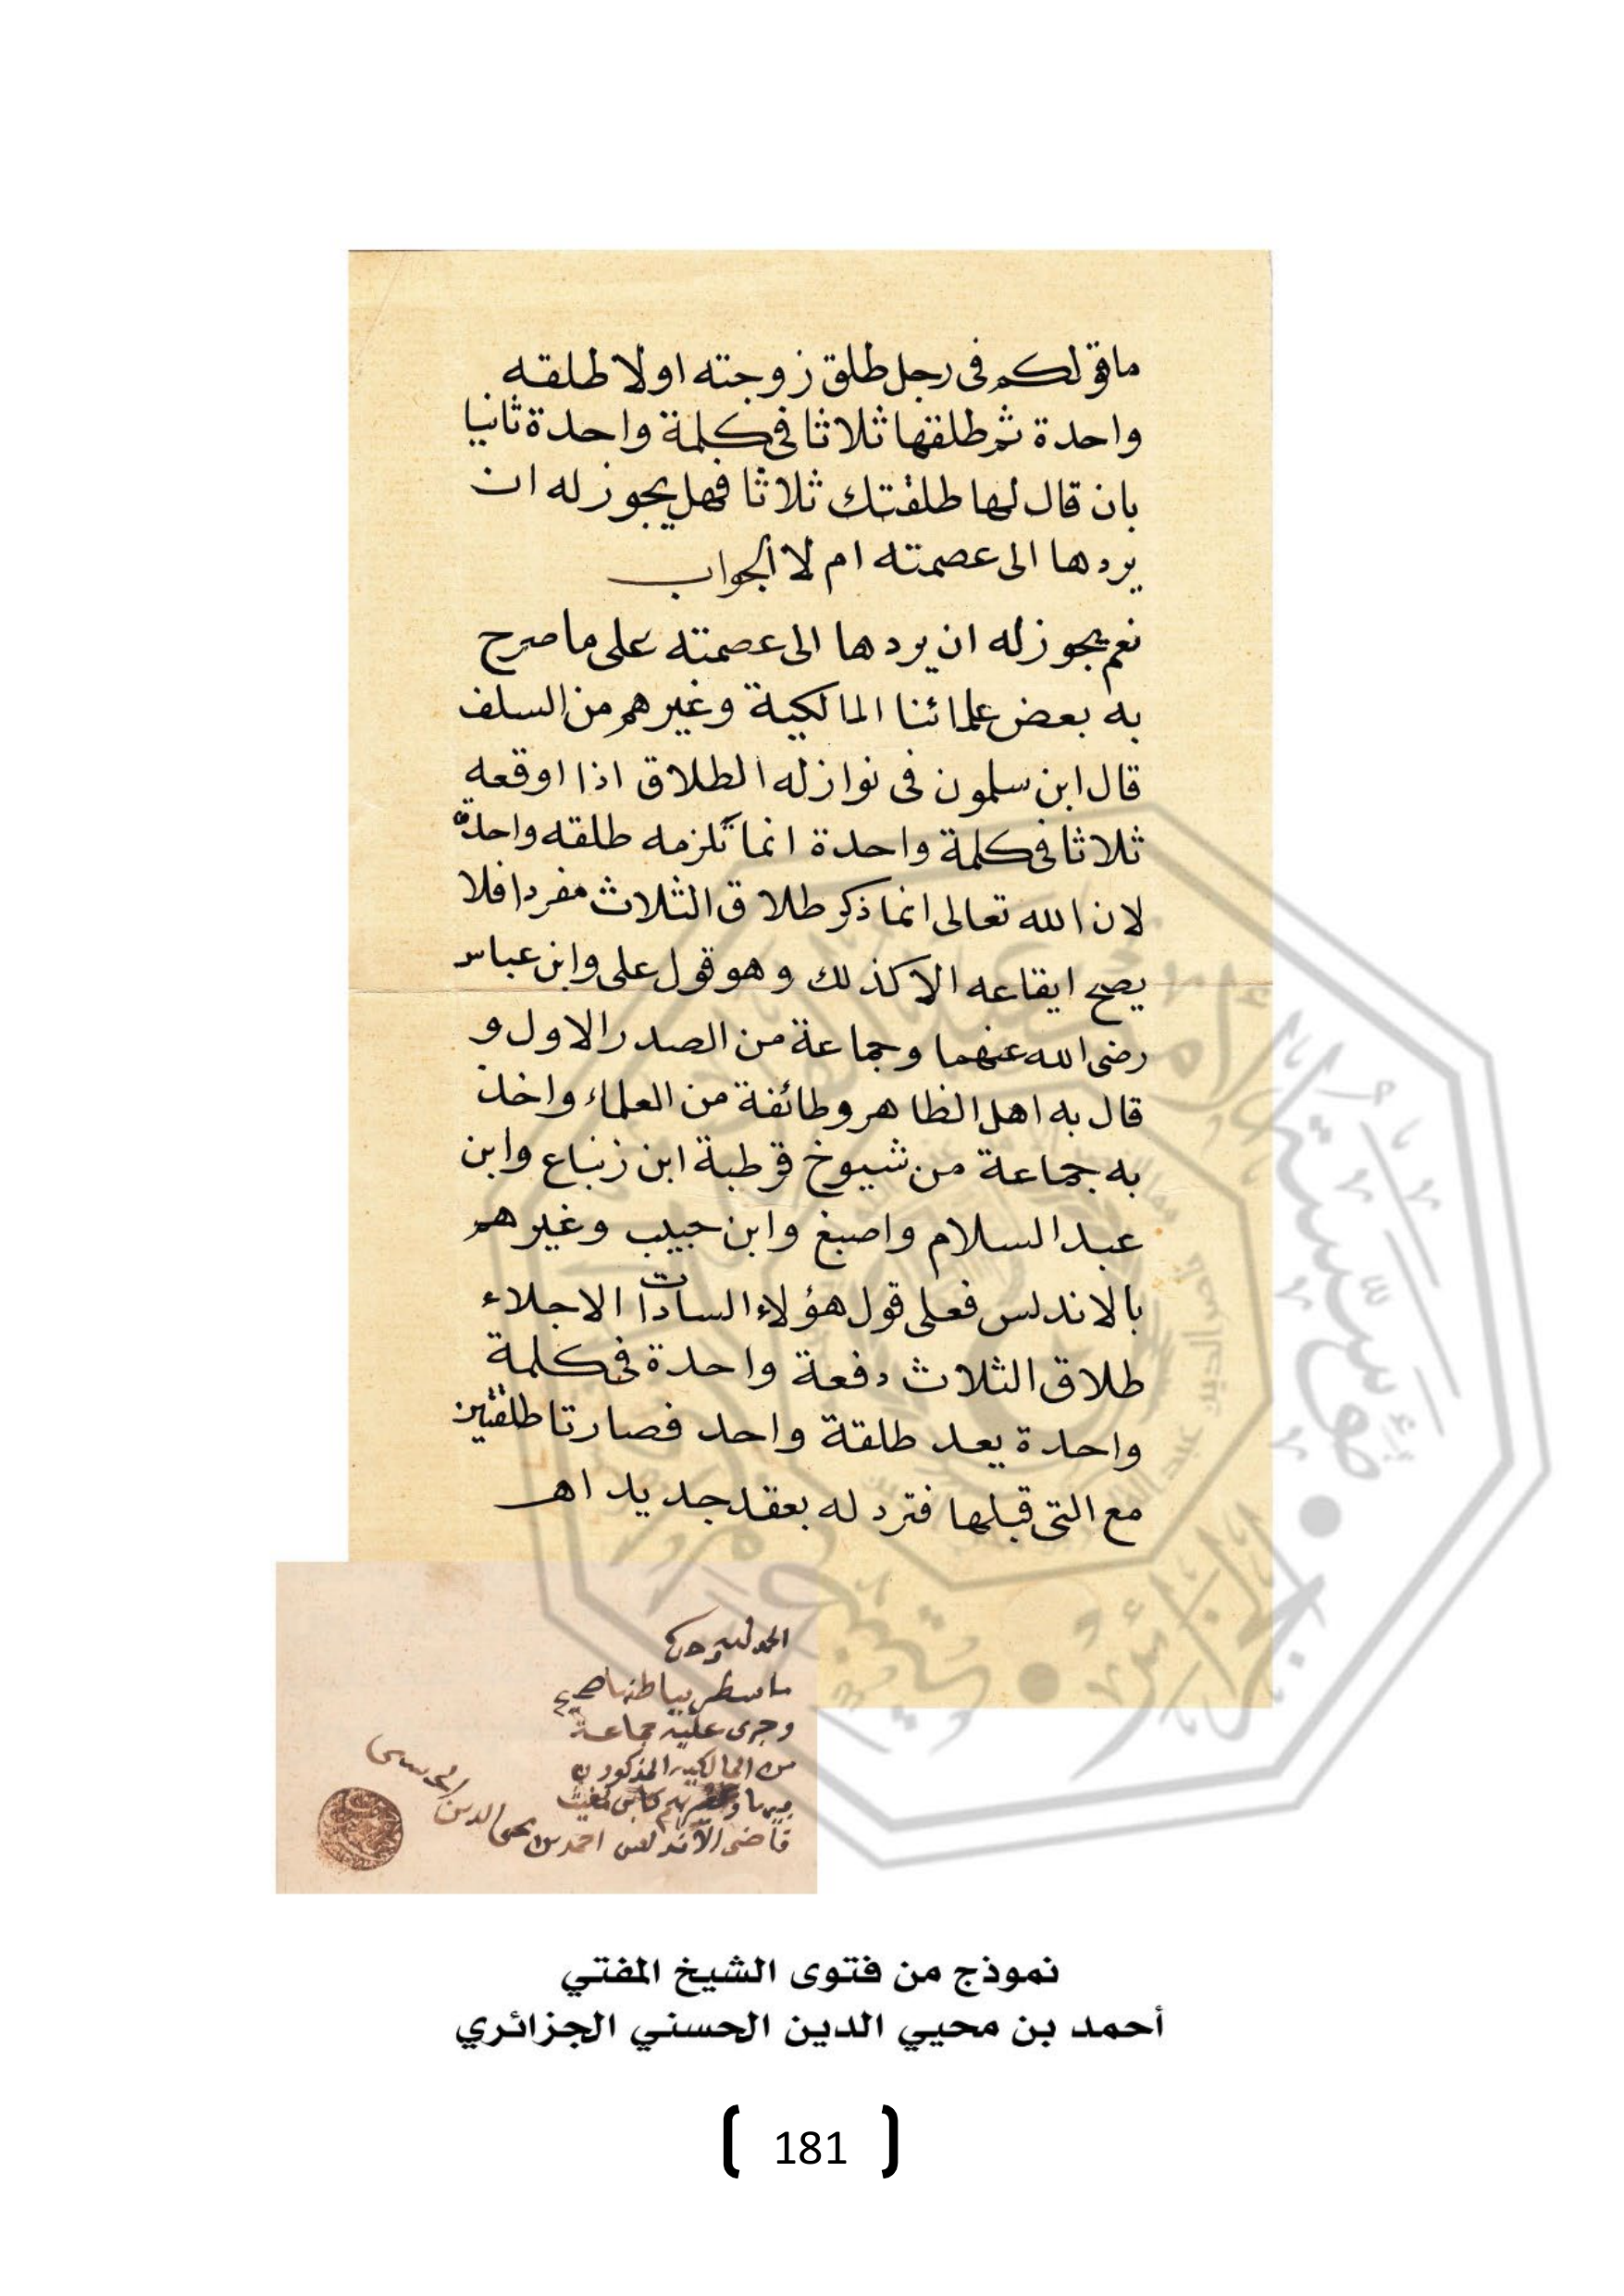 ماقولكم فى رجل طلق زوجته اولا طلقه
واحدة ثم طلقها ثلاثا فى كلمة واحدة ثانيا
بان قال لها طلقتك ثلاثا فهل يجوز له ان
يردها الى عصمته ام لا الجواب
نعم يجوز له ان يردها الى عصمته على ما صرح
به بعض علمائنا المالكية وغيرهم من السلف
قال ابن سلمون فى نوازله الطلاق اذا اوقعه
ثلاثا فى كلمة واحدة انما تلزمه طلقه واحدة
لان الله تعالى انما ذكر طلاق الثلاث مفردا فلا
يصح ايقاعه الا كذلك وهو قول على وابن عباس
رضى الله عنهما وجماعة من الصدر الاول و
قال به اهل الظاهر وطائفة من العلماء واخذ
به جماعة من شيوخ قرطبة ابن زنباع وابن
عبد السلام واصبغ وابن حبيب وغيرهم
بالاندلس فعلى قول هؤلاء السادات الاجلاء
طلاق الثلاث دفعة واحدة فى كلمة
واحدة يعد طلقة واحد فصارتا طلقتين
مع التى قبلها فترد له بعقد جديد اهـ
الحمد لله وحده
ما سطر بباطنها صحيح
وجرى عليه جماعة
من المالكية المذكورون
كابن مغيث
قاضى الاندلس احمد بن محيى الدين الحسنى
نموذج من فتوى الشيخ المفتي
أحمد بن محيي الدين الحسني الجزائري
181